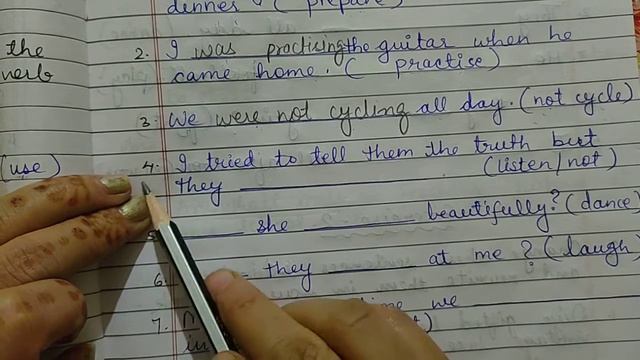 denner ( prepare )
the
verb
2. I was practicing the guitar when he
came home. ( practise )
3. We were not cycling all day. (not cycle)
(use)
4. I tried to tell them the truth but
they ____________ (listen/not)
______ she ________ beautifully? (dance)
6. ______ they ________ at me ? ( laugh )
we ________
7.